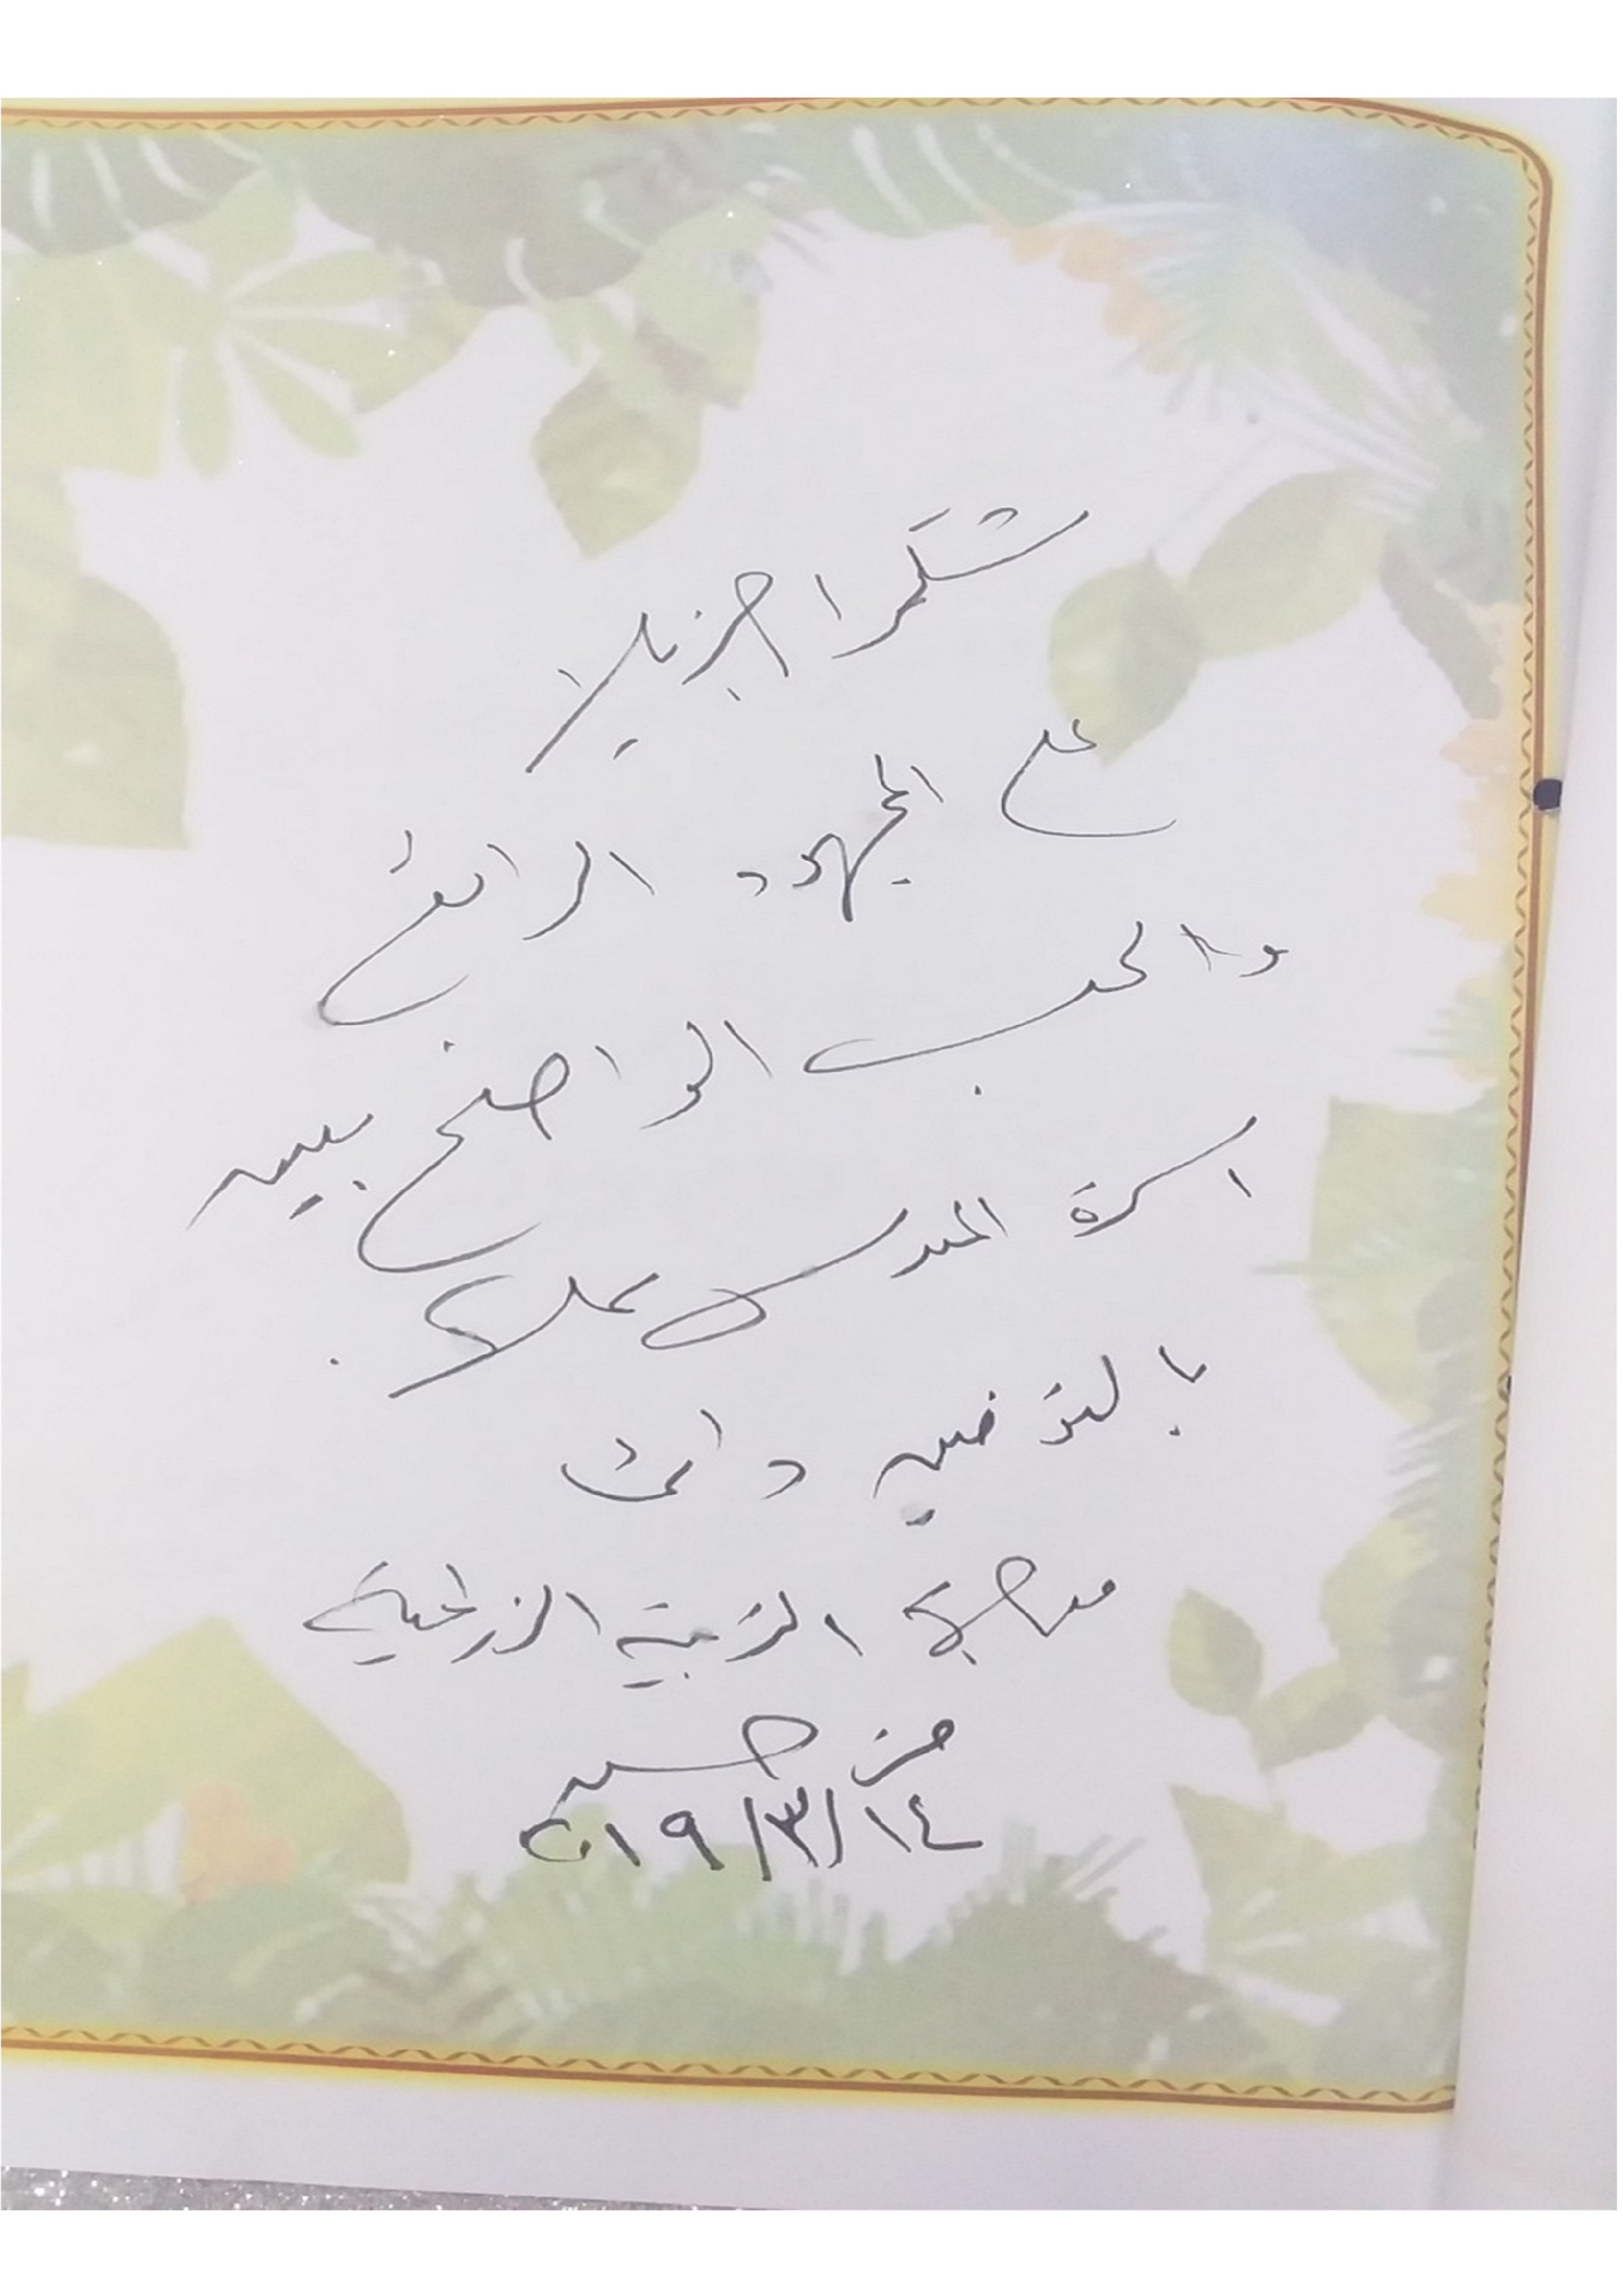 شكرا جزيلا
على المجهود الرائع
والحب الواضح بين
اسرة المدرسة عملكم
بالتوفيق دائما
موجه التربية الزراعية
حسين
١٤/٣/٢٠١٩